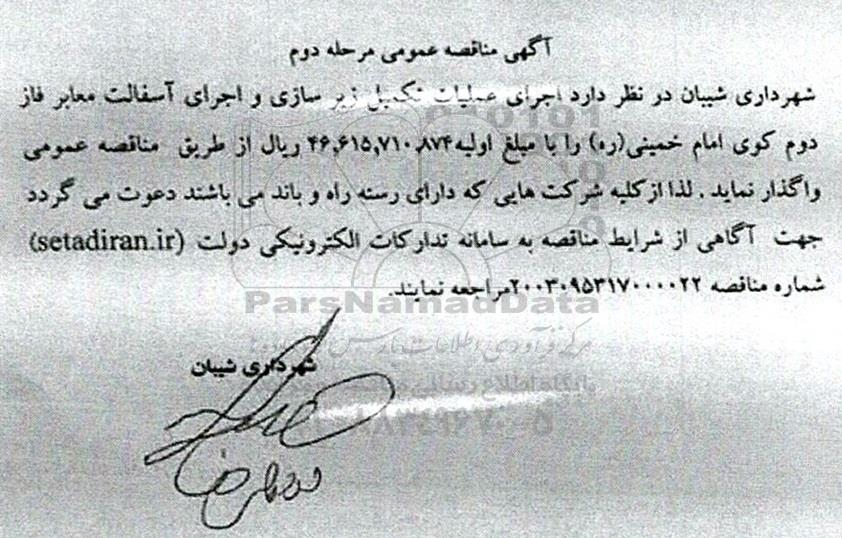 آگهی مناقصه عمومی مرحله دوم
شهرداری شیبان در نظر دارد اجرای عملیات تکمیل زیر سازی و اجرای آسفالت معابر فاز
دوم کوی امام خمینی(ره) را با مبلغ اولیه۴۶,۶۱۵,۷۱۰,۸۷۴ ریال از طریق مناقصه عمومی
واگذار نماید . لذا ازکلیه شرکت هایی که دارای رسته راه و باند می باشند دعوت می گردد
جهت آگاهی از شرایط مناقصه به سامانه تدارکات الکترونیکی دولت (setadiran.ir)
شماره مناقصه ۲۰۰۳۰۹۵۳۱۷۰۰۰۰۲۲مراجعه نمایند.
ParsNamadData
شهرداری شیبان